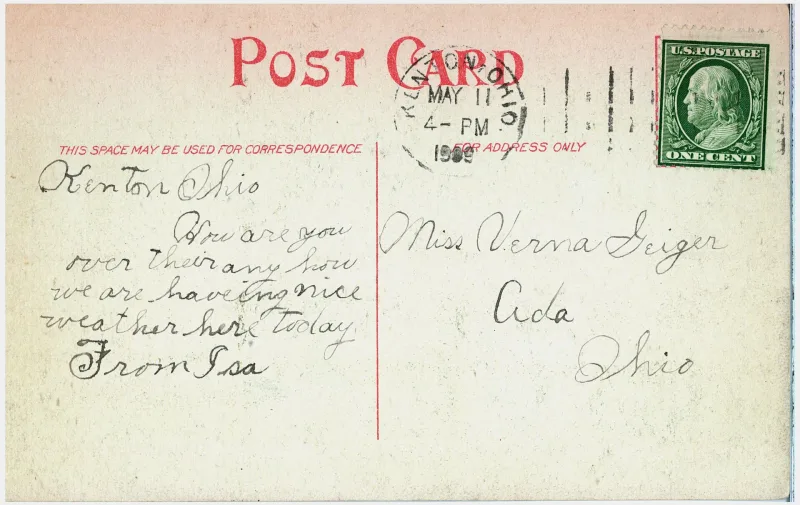 POST CARD
KENTON, OHIO
MAY 11
4 - PM
1909
U.S. POSTAGE
ONE CENT
THIS SPACE MAY BE USED FOR CORRESPONDENCE
FOR ADDRESS ONLY
Kenton Ohio
How are you
over their any how
we are haveing nice
weather here today
From Isa
Miss Verna Geiger
Ada
Ohio